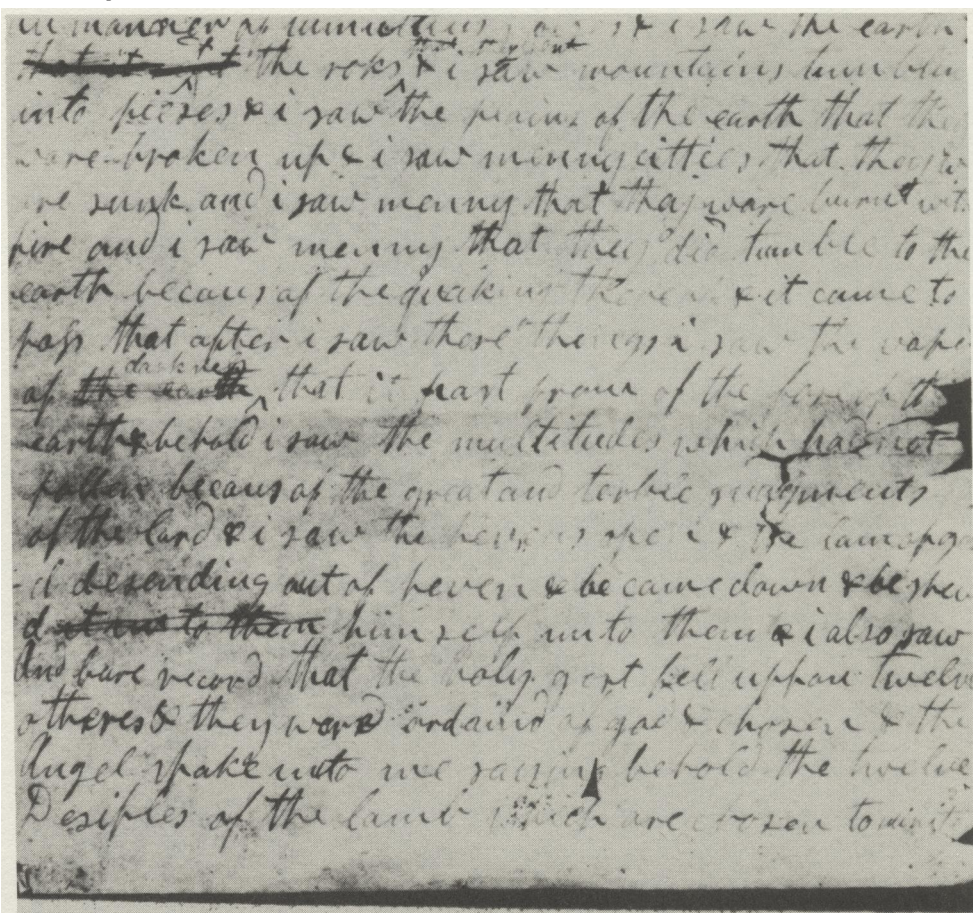 in manner of tumultious noises & i saw the earth
that it the roks that it rent & i saw mountains tumblin
into peeses & i saw the plains of the earth that they
ware broken up & i saw menny citties that they w
are sunk and i saw menny that thay ware burnt with
fire and i saw menny that they did tumble to the
earth becaus of the quaking thereof & it came to
pass that after i saw these things i saw the vapor
of the earth darkness that it past from of the face of the
earth & behold i saw the multitudes which had not
fallen becaus of the great and terble judgments
of the lord & i saw the hevens open & the lam of go
d desending out of heven & he came down & he shew
d it unto them himself unto them & i also saw
And bare record that the holy gost fell uppon twelve
otheres & they were ordaind of god & chosen & the
Angel spake unto me saying behold the twelve
Desiples of the lamb which are chosen to minist